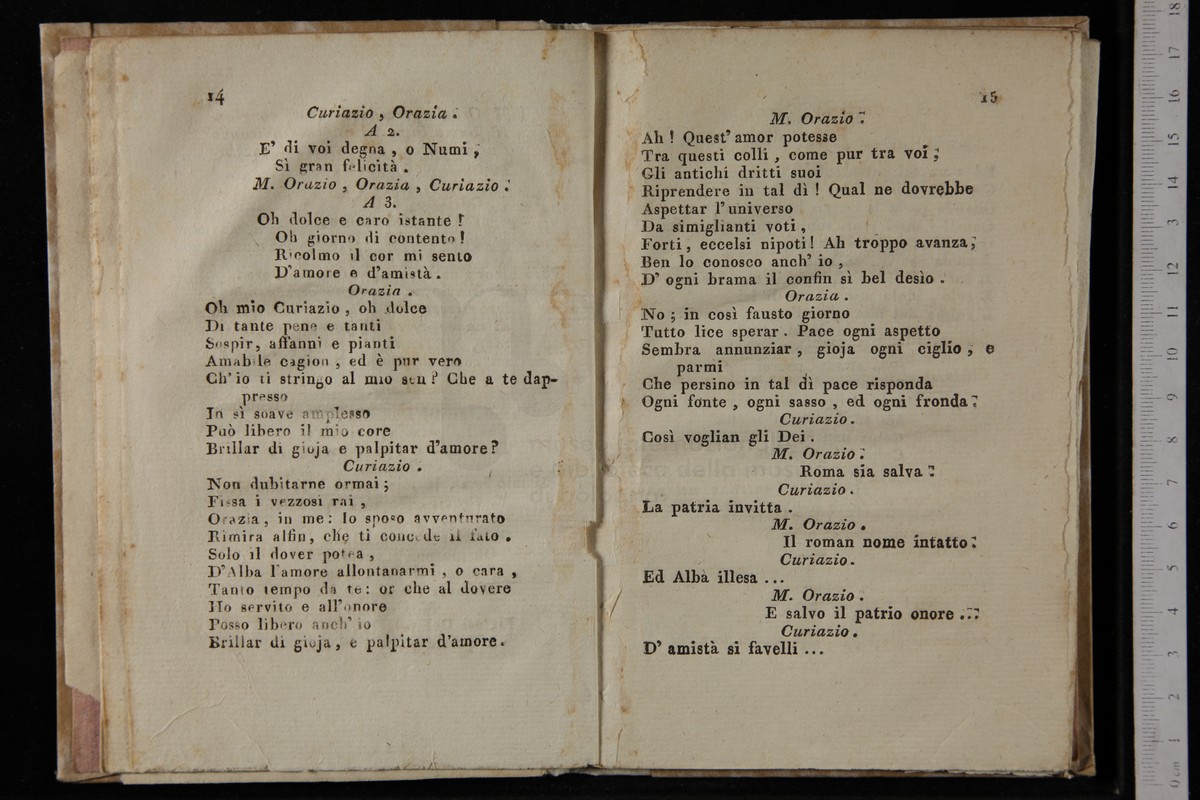 14
Curiazio , Orazia .
A 2.
E' di voi degna , o Numi ,
Sì gran felicità .
M. Orazio , Orazia , Curiazio .
A 3.
Oh dolce e caro istante !
Oh giorno di contento !
Ricolmo il cor mi sento
D'amore e d'amistà .
Orazia .
Oh mio Curiazio , oh dolce
Di tante pene e tanti
Sospir, affanni e pianti
Amabile cagion , ed è pur vero
Ch'io ti stringo al mio sen? Che a te dap-
presso
In sì soave amplesso
Può libero il mio core
Brillar di gioja e palpitar d'amore?
Curiazio .
Non dubitarne ormai ;
Fissa i vezzosi rai ,
Orazia, in me: lo sposo avventurato
Rimira alfin, che ti concede il fato .
Solo il dover potea ,
D'Alba l'amore allontanarmi , o cara ,
Tanto tempo da te: or che al dovere
Ho servito e all'onore
Posso libero anch' io
Brillar di gioja, e palpitar d'amore.
15
M. Orazio .
Ah ! Quest' amor potesse
Tra questi colli , come pur tra voi ,
Gli antichi dritti suoi
Riprendere in tal dì ! Qual ne dovrebbe
Aspettar l'universo
Da simiglianti voti ,
Forti, eccelsi nipoti! Ah troppo avanza,
Ben lo conosco anch' io ,
D' ogni brama il confin sì bel desìo .
Orazia .
No ; in così fausto giorno
Tutto lice sperar . Pace ogni aspetto
Sembra annunziar , gioja ogni ciglio , e
parmi
Che persino in tal dì pace risponda
Ogni fonte , ogni sasso , ed ogni fronda .
Curiazio .
Così voglian gli Dei .
M. Orazio .
Roma sia salva .
Curiazio .
La patria invitta .
M. Orazio .
Il roman nome intatto .
Curiazio .
Ed Alba illesa ...
M. Orazio .
E salvo il patrio onore ...
Curiazio .
D' amistà si favelli ...
0 cm 1 2 3 4 5 6 7 8 9 10 11 12 13 14 15 16 17 18